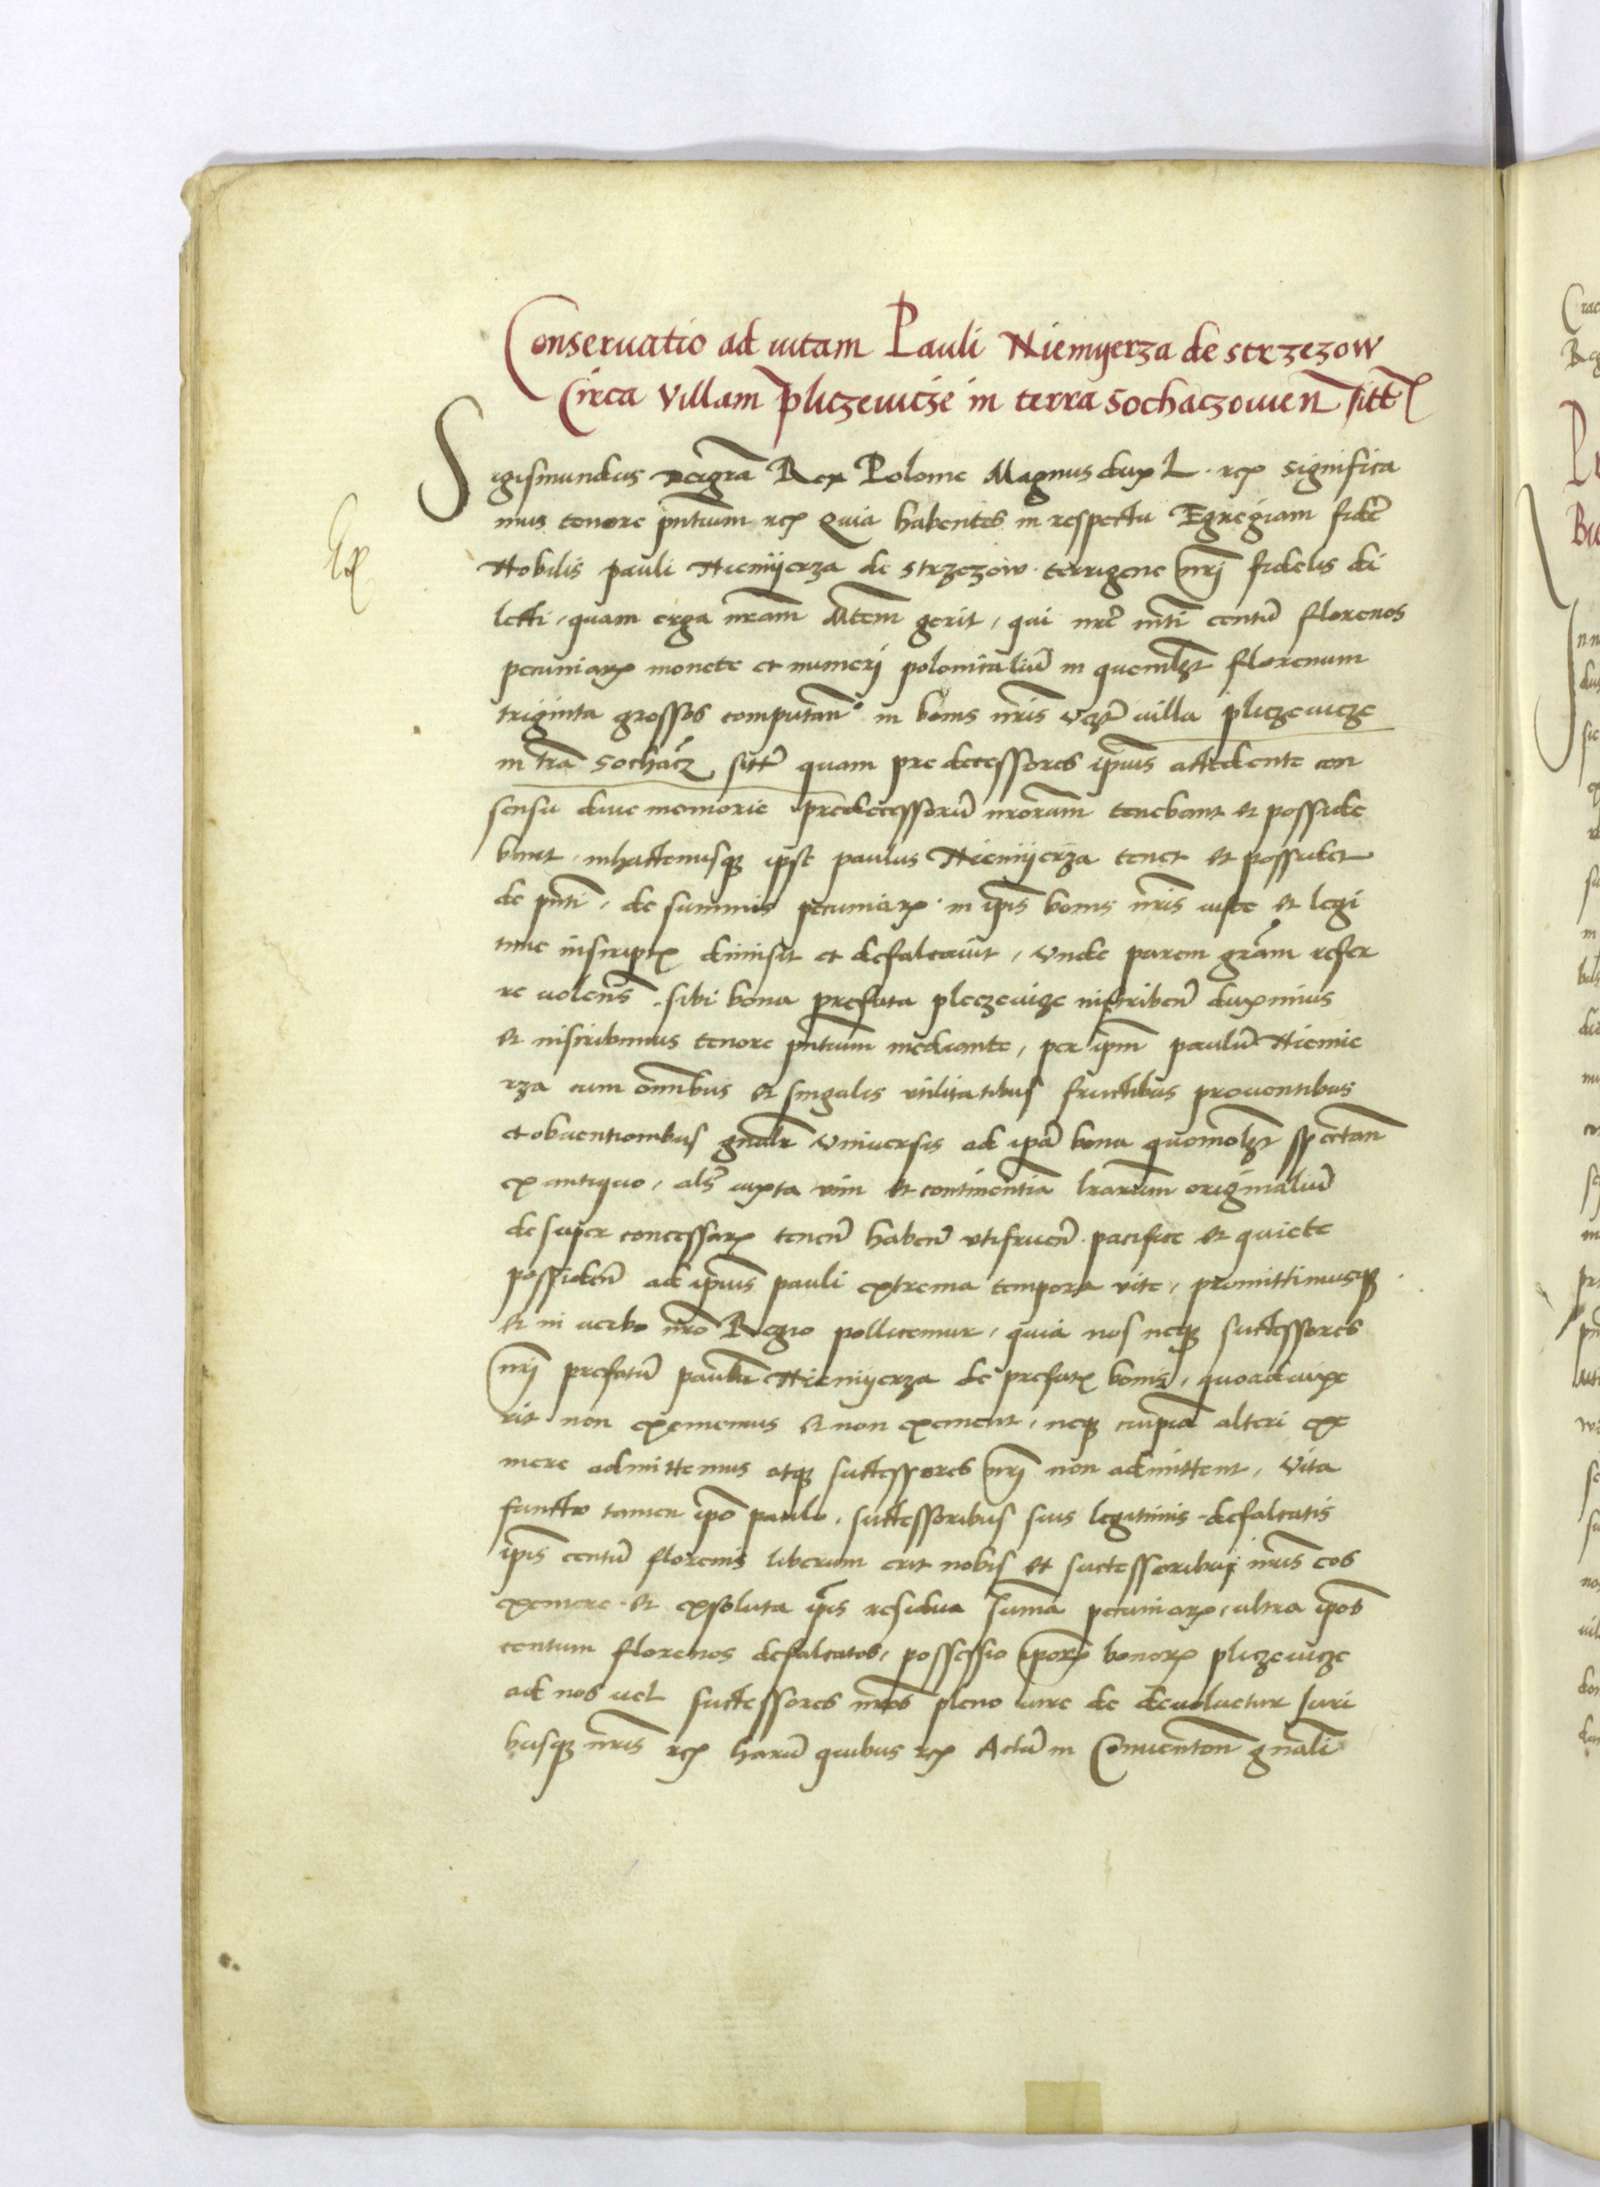 Conseruatio ad uitam Pauli Niemyerza de strzezow
Circa Villam pliczewicze in terra Sochaczouien sitt
Sigismundus deigra Rex Polonie Magnus dux L. rcz significa
mus tenore pntium rcz Quia habentes in respectu Egregiam fidē
Nobilis pauli Niemyerza de strzezow terrigene nrj fidelis di
lecti, quam erga nram Mtem gerit, qui nre mti centū florenos
pecuniarz monete et numeri polonicaliū in quemlzt florenum
triginta grossos computan in bonis nris vczt villa pliczewicze
in tra Sochacz sitt quam predecessores ipius accedente con
sensu diue memorie predecessorū nrorum tenebant et posside
bant, inhactenusqz ipse paulus Niemyerza tenet et possidet
de pnti, de summis pecuniarz in ipis bonis nris iuste et legi
time inscript dimisit et defalcauit, Vnde parem gram refer
re uolens, sibi bona prefata pleczewicze inscriben duximus
et inscribimus tenore pntium mediante, per ipm paulū Niemie
rza cum omnibus et singulis vtilitatibus fructibus prouentibus
et obuentionibus gnalr Vniuersis ad ipa bona quomolzt spectan
ex antiquo, als iuxta vim et continentia lrarum originaliū
desuper concessarz tenen haben vtifruen pacifice et quiete
possiden ad ipius pauli extrema tempora vite, promittimusqz
et in uerbo nro Regio pollicemur, quia nos neqz successores
nrj prefatū paulum Niemyerza de prefat bonis, quoaduixe
rit non eximemus et non eximent, neqz cuipia alteri exi
mere admittemus atqz successores nrj non admittent, Vita
functo tamen ipo paulo, successoribus suis legitimis defalcatis
ipis centū florenis liberum erit nobis et successoribus nris eos
eximere et exsoluta ipis residua suma pecuniarz, ultra ipos
centum florenos defalcatos, possessio iporz bonorz pliczewicze
ad nos uel successores nros pleno iure de deuoluetur Juri
busqz nris rcz harū quibus rcz Actū in Conuention gnali
Ex